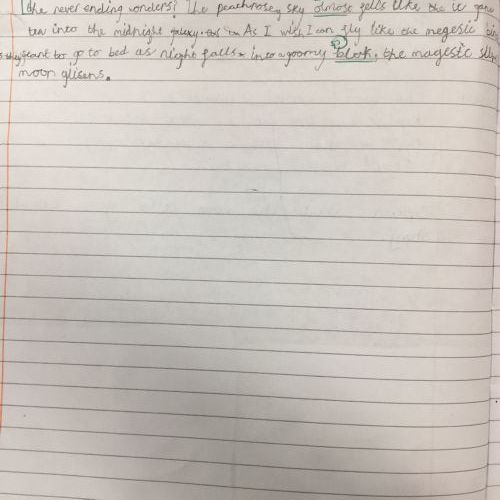 the never ending wonders? The peachrose sky almose fells like the
tea into the midnight galaxy. As I wish I can fly like the megestic
they want to go to bed as night falls into a goomy blork. the magestic
moon glisens.